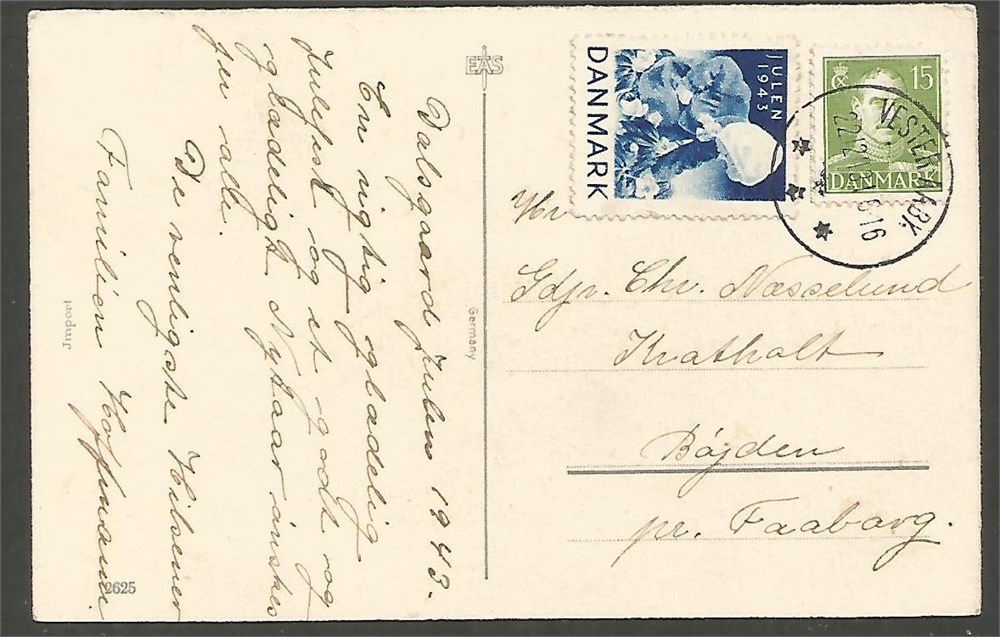 Dalsgaard Julen 1943.
En rigtig glædelig
Julefest og et godt og
glædeligt Nytaar ønskes
Jer alle.
De venligste Hilsener
Familien Hoffmann.
EAS
Germany
Import
2625
JULEN
1943
DANMARK
15
DANMARK
VESTER AABY.
22.12.43 6-16
Hr
Gdjr. Chr. Næsselund
Kratholt
Böjden
pr. Faaborg.